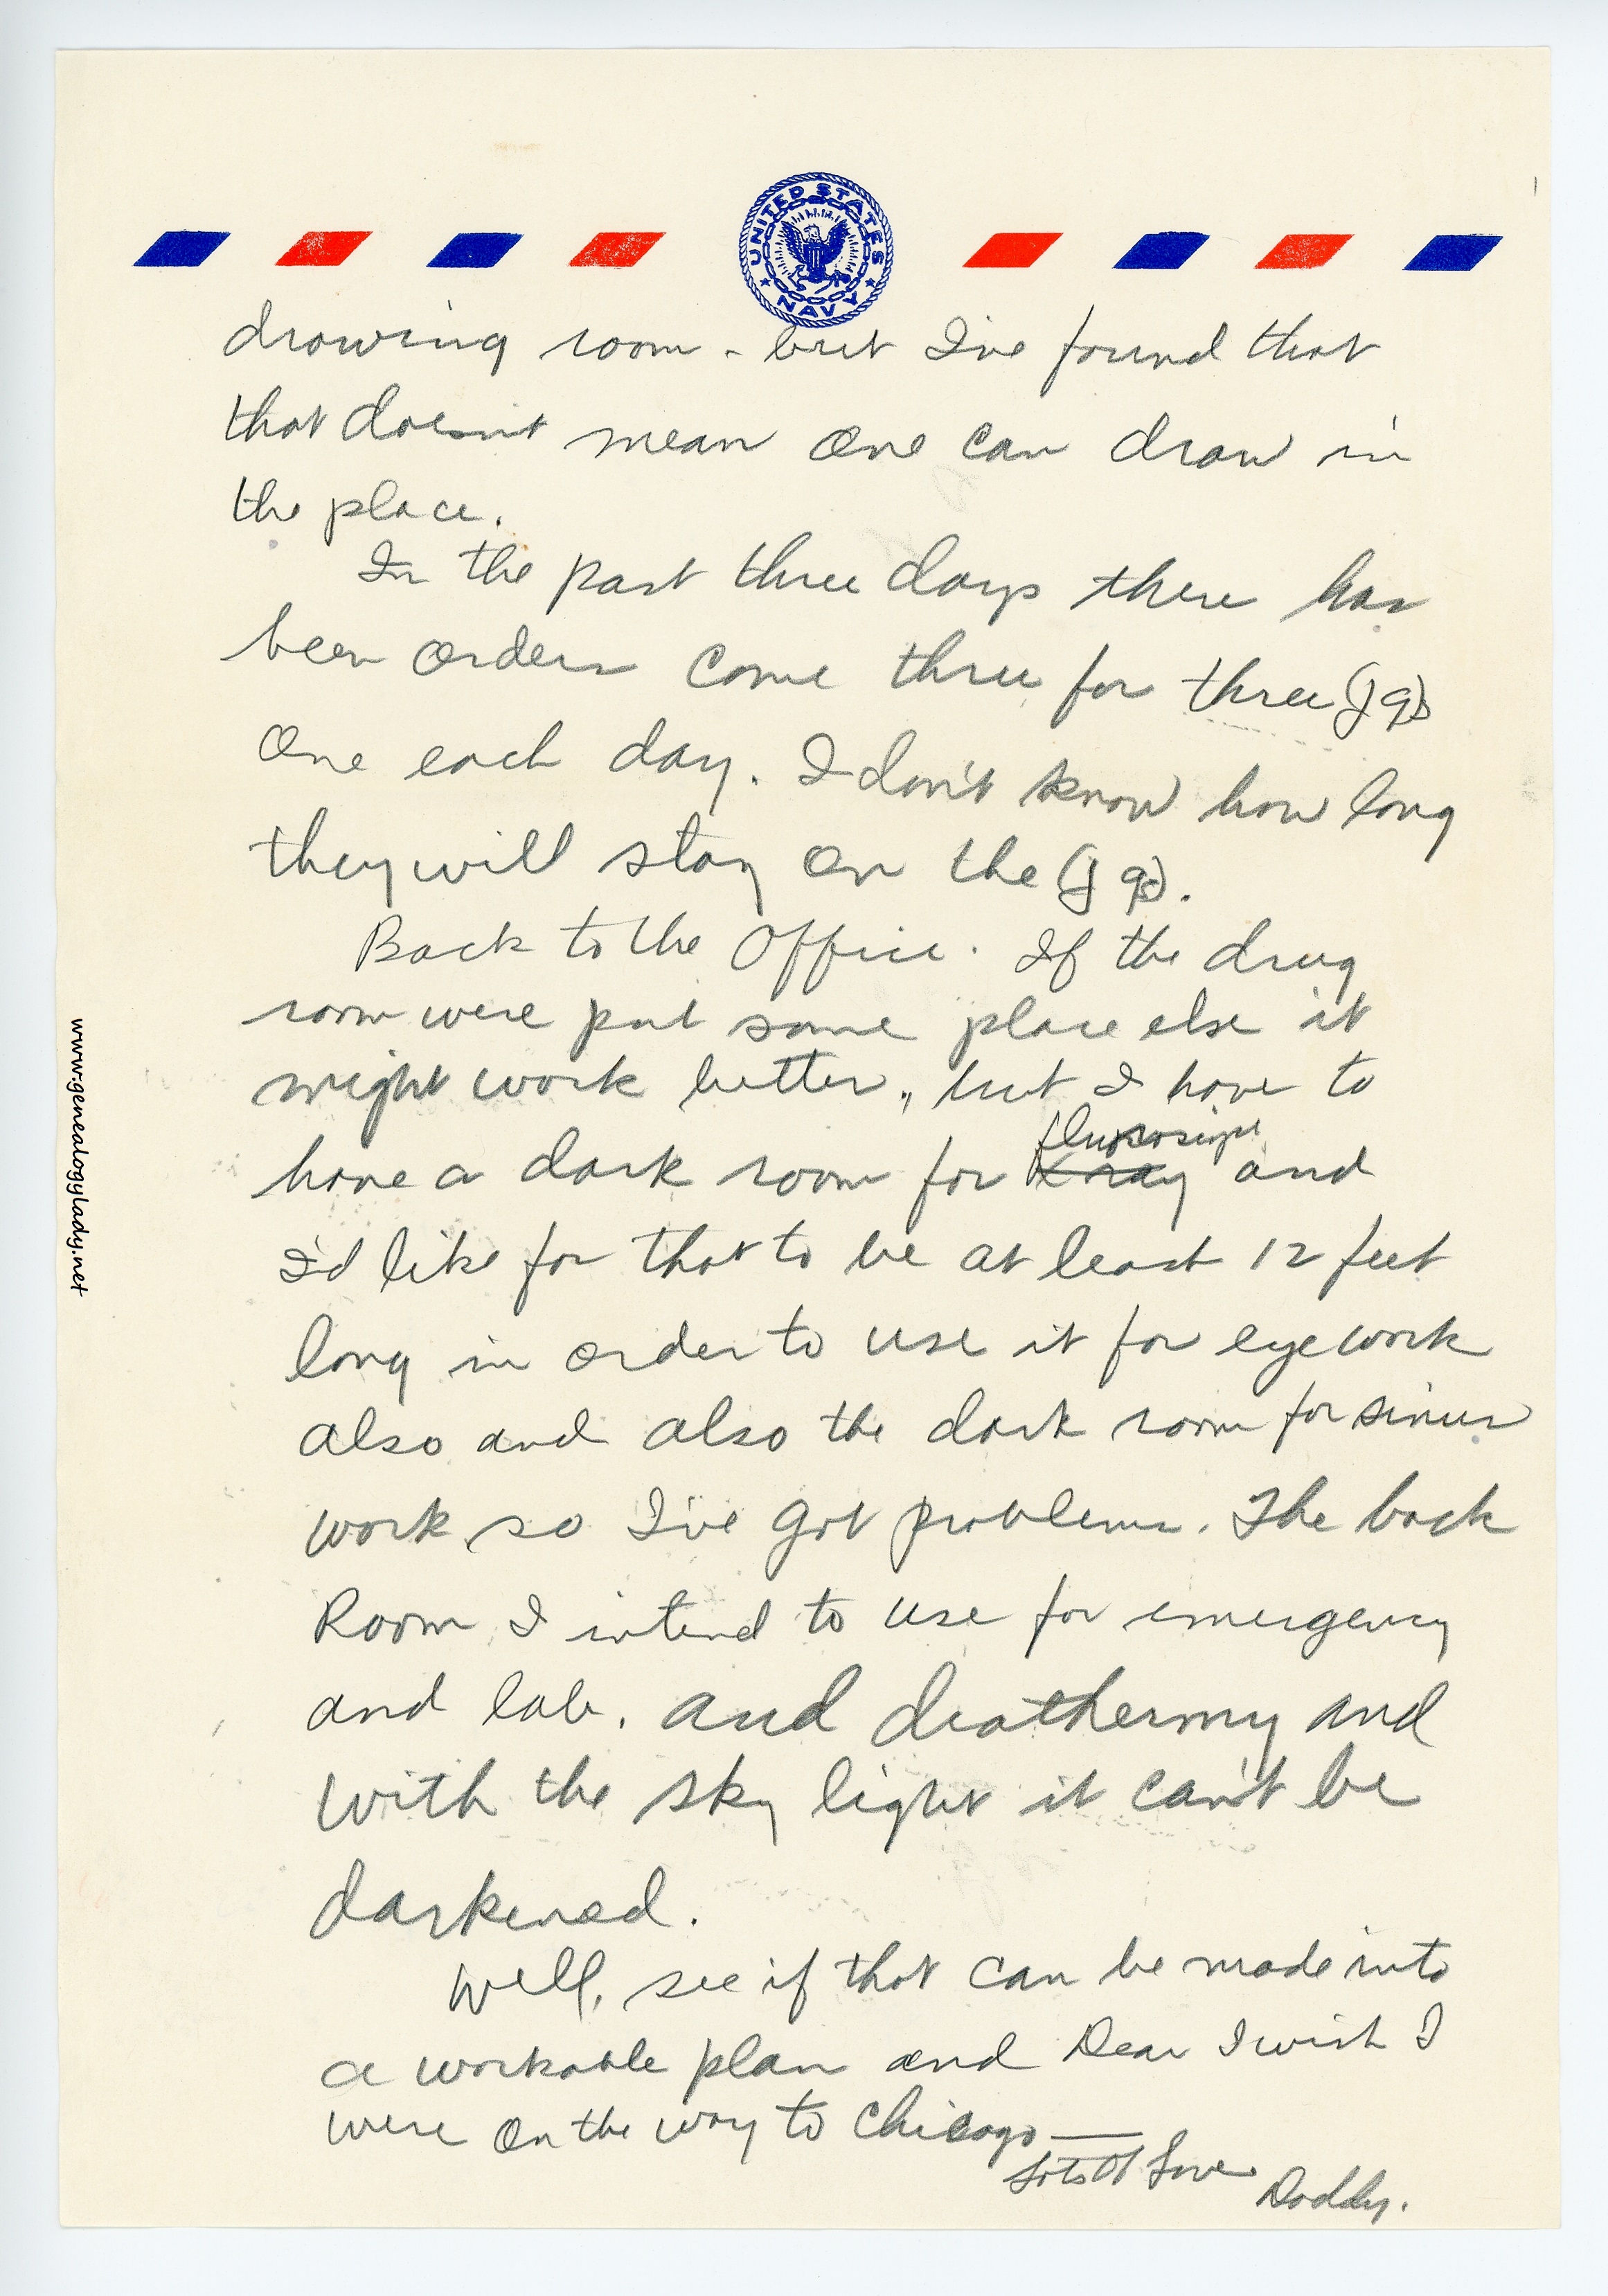 UNITED STATES NAVY
drawing room - but I've found that
that doesn't mean one can draw in
the place.
In the past three days there has
been orders come three for three (jgs)
One each day. I don't know how long
they will stay on the (jgs).
Back to the Office. If the drug
room were put some place else it
might work better, but I have to
fluoroscope
have a dark room for Xray and
I'd like for that to be at least 12 feet
long in order to use it for eye work
also and also the dark room for sinus
work so I've got problems. The back
Room I intend to use for emergency
and lab. and diathermy and
with the sky light it can't be
darkened.
Well, see if that can be made into
a workable plan and Dear I wish I
were on the way to Chicago —
Lots Of Love
Daddy.
www.genealogylady.net